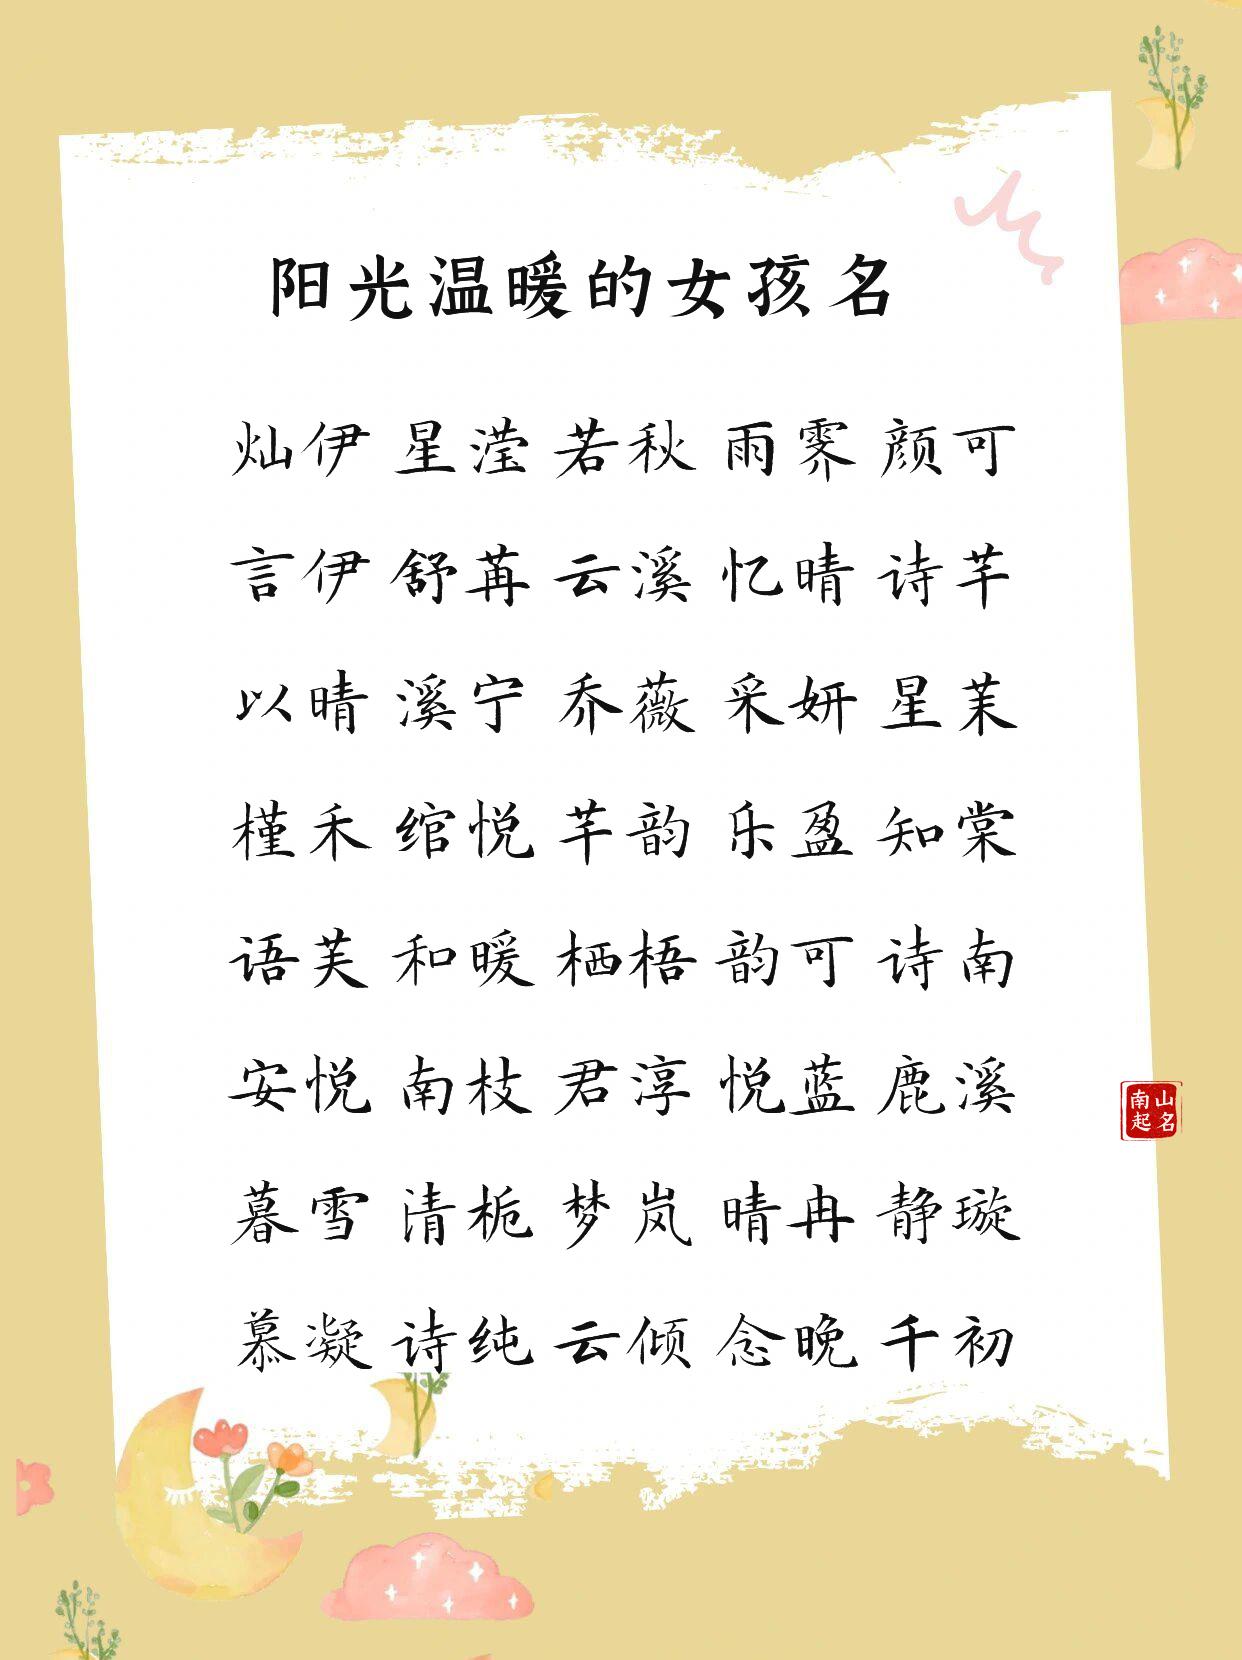 阳光温暖的女孩名
灿伊 星滢 若秋 雨霁 颜可
言伊 舒苒 云溪 忆晴 诗芊
以晴 溪宁 乔薇 采妍 星茉
槿禾 绾悦 芊韵 乐盈 知棠
语芙 和暖 栖梧 韵可 诗南
安悦 南枝 君淳 悦蓝 鹿溪
暮雪 清栀 梦岚 晴冉 静璇
慕凝 诗纯 云倾 念晚 千初
南山
起名